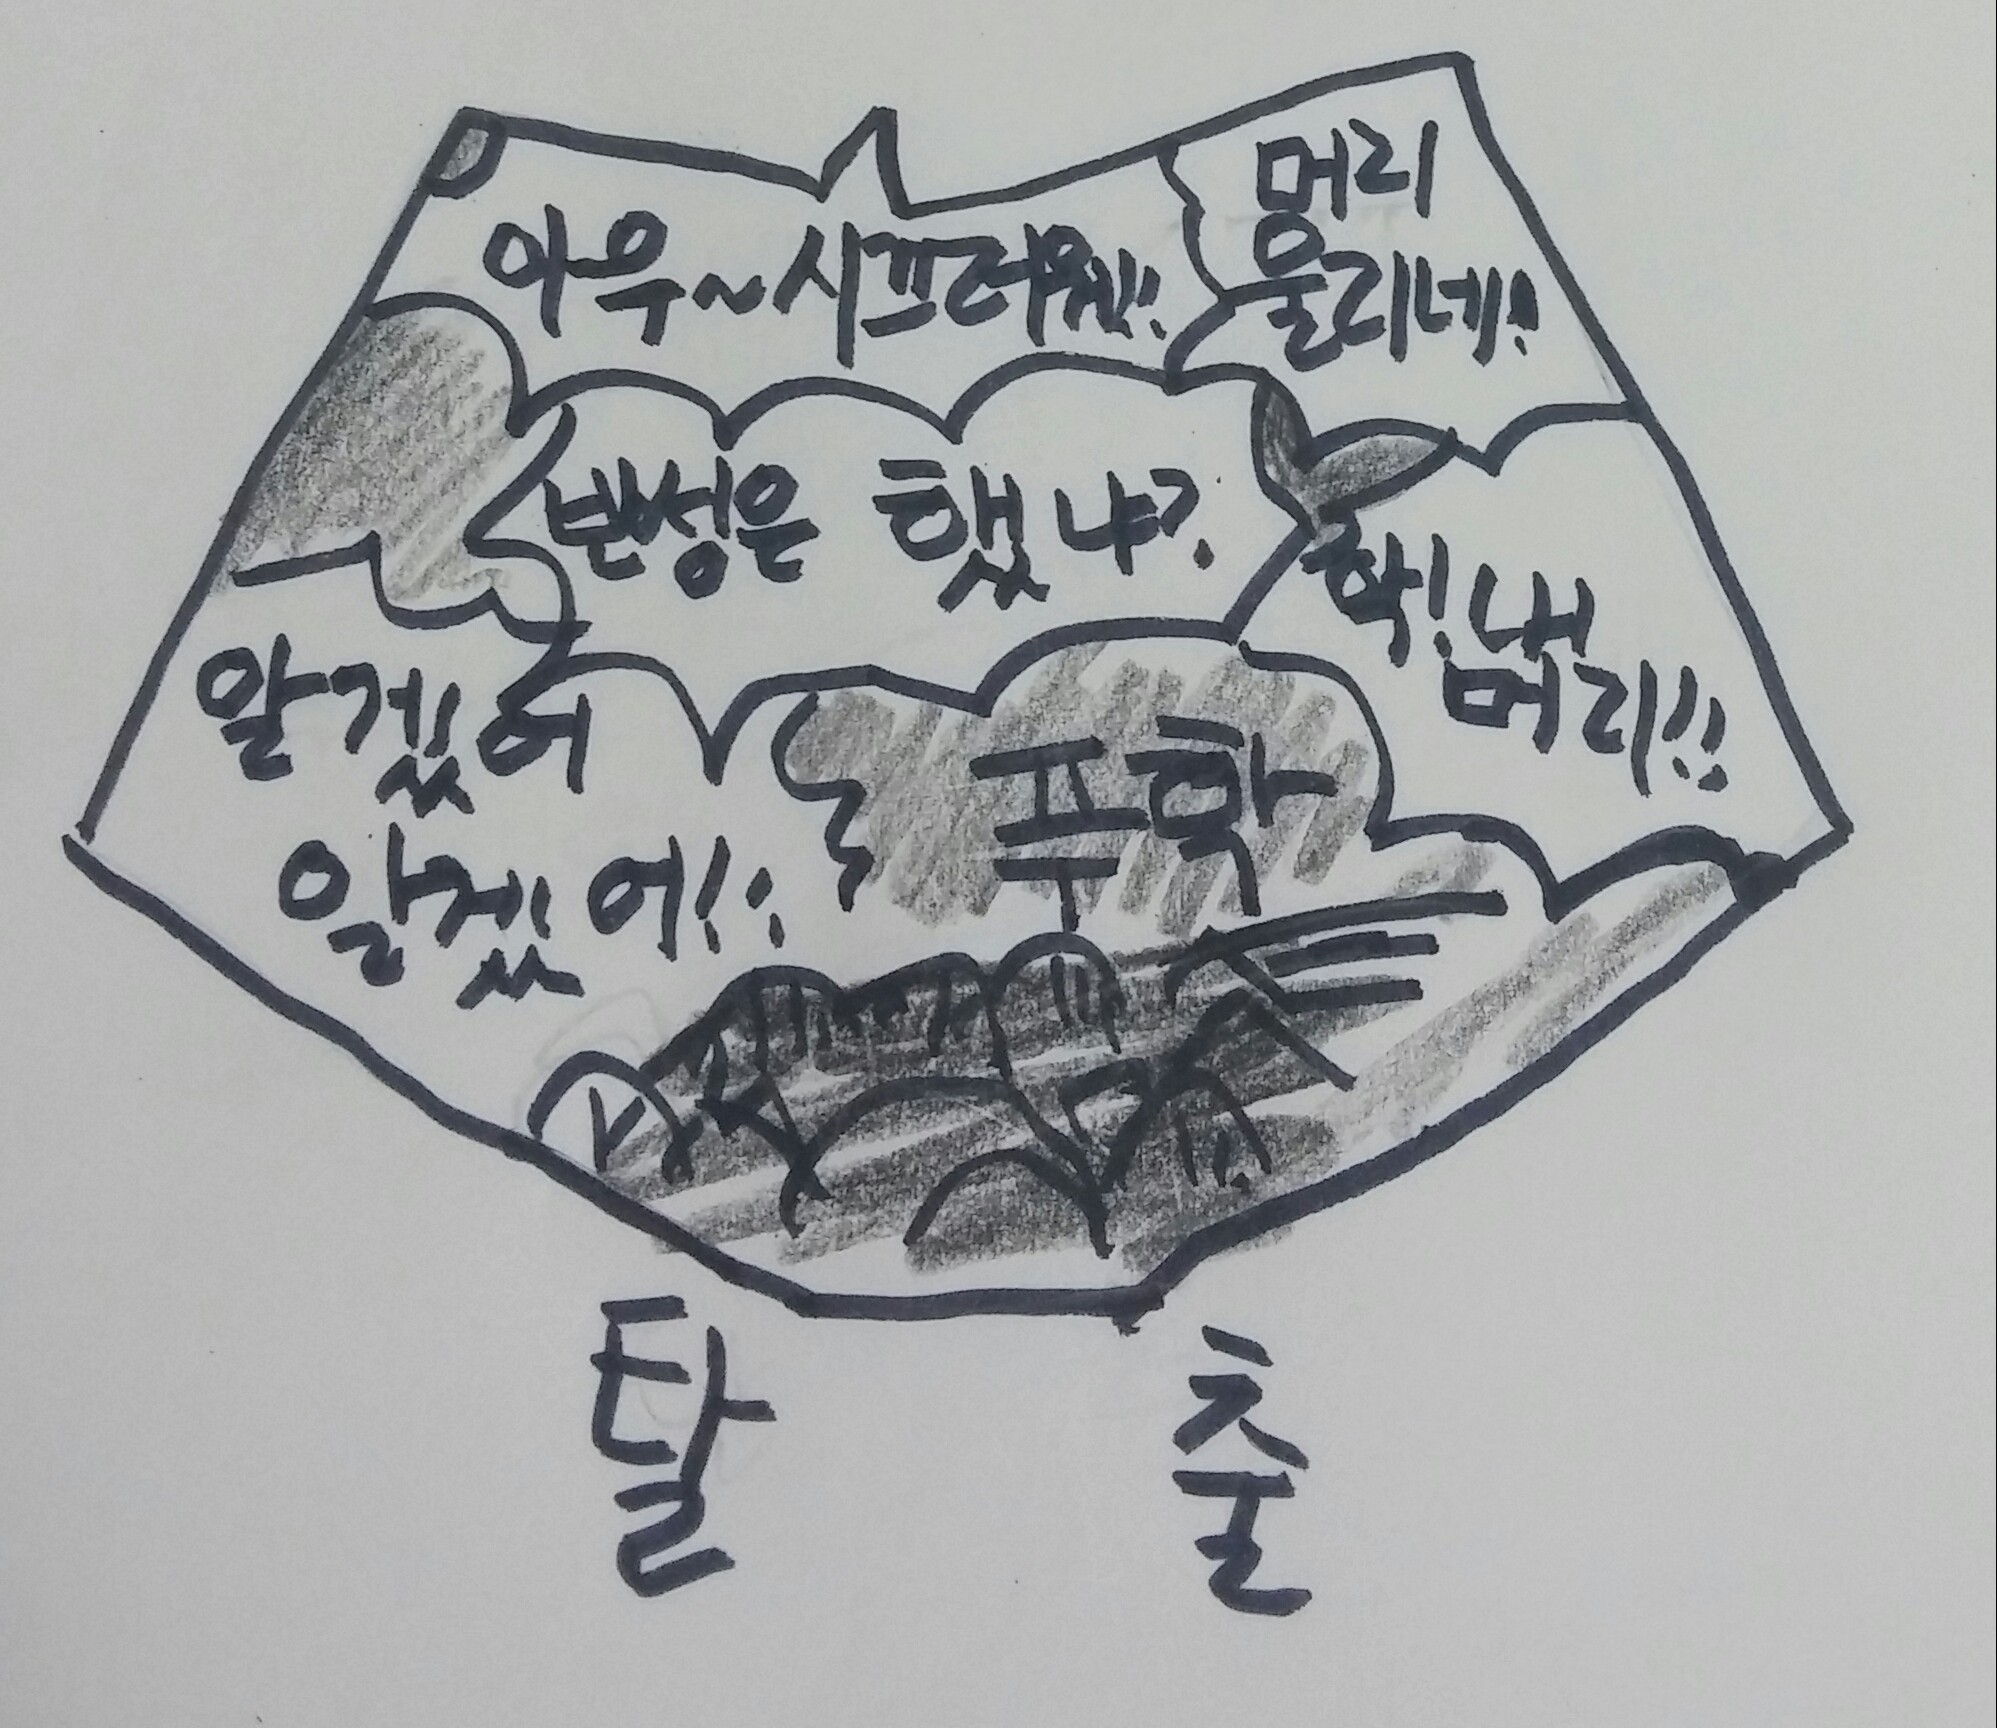 아우~시끄러워!!
머리
울리네!
반성은 했냐?
학! 내
머리!!
알겠어
알겠어!!
푸학
탈 출